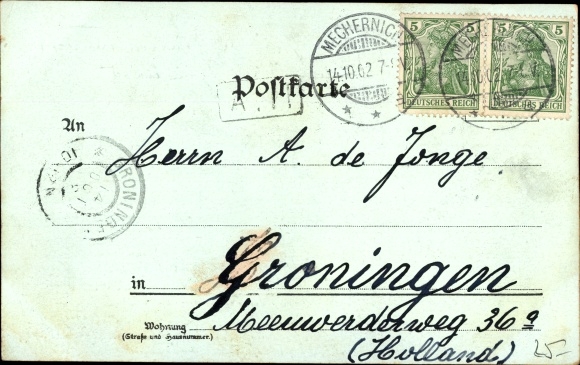 5 5
MECHERNICH
14.10.02 7-8
DEUTSCHES REICH DEUTSCHES REICH
Postkarte
An
Herrn A. de Jonge
GRONINGEN
in Groningen
Wohnung
(Straße und Hausnummer.)
Meeuwerderweg 36a
(Holland)
25-